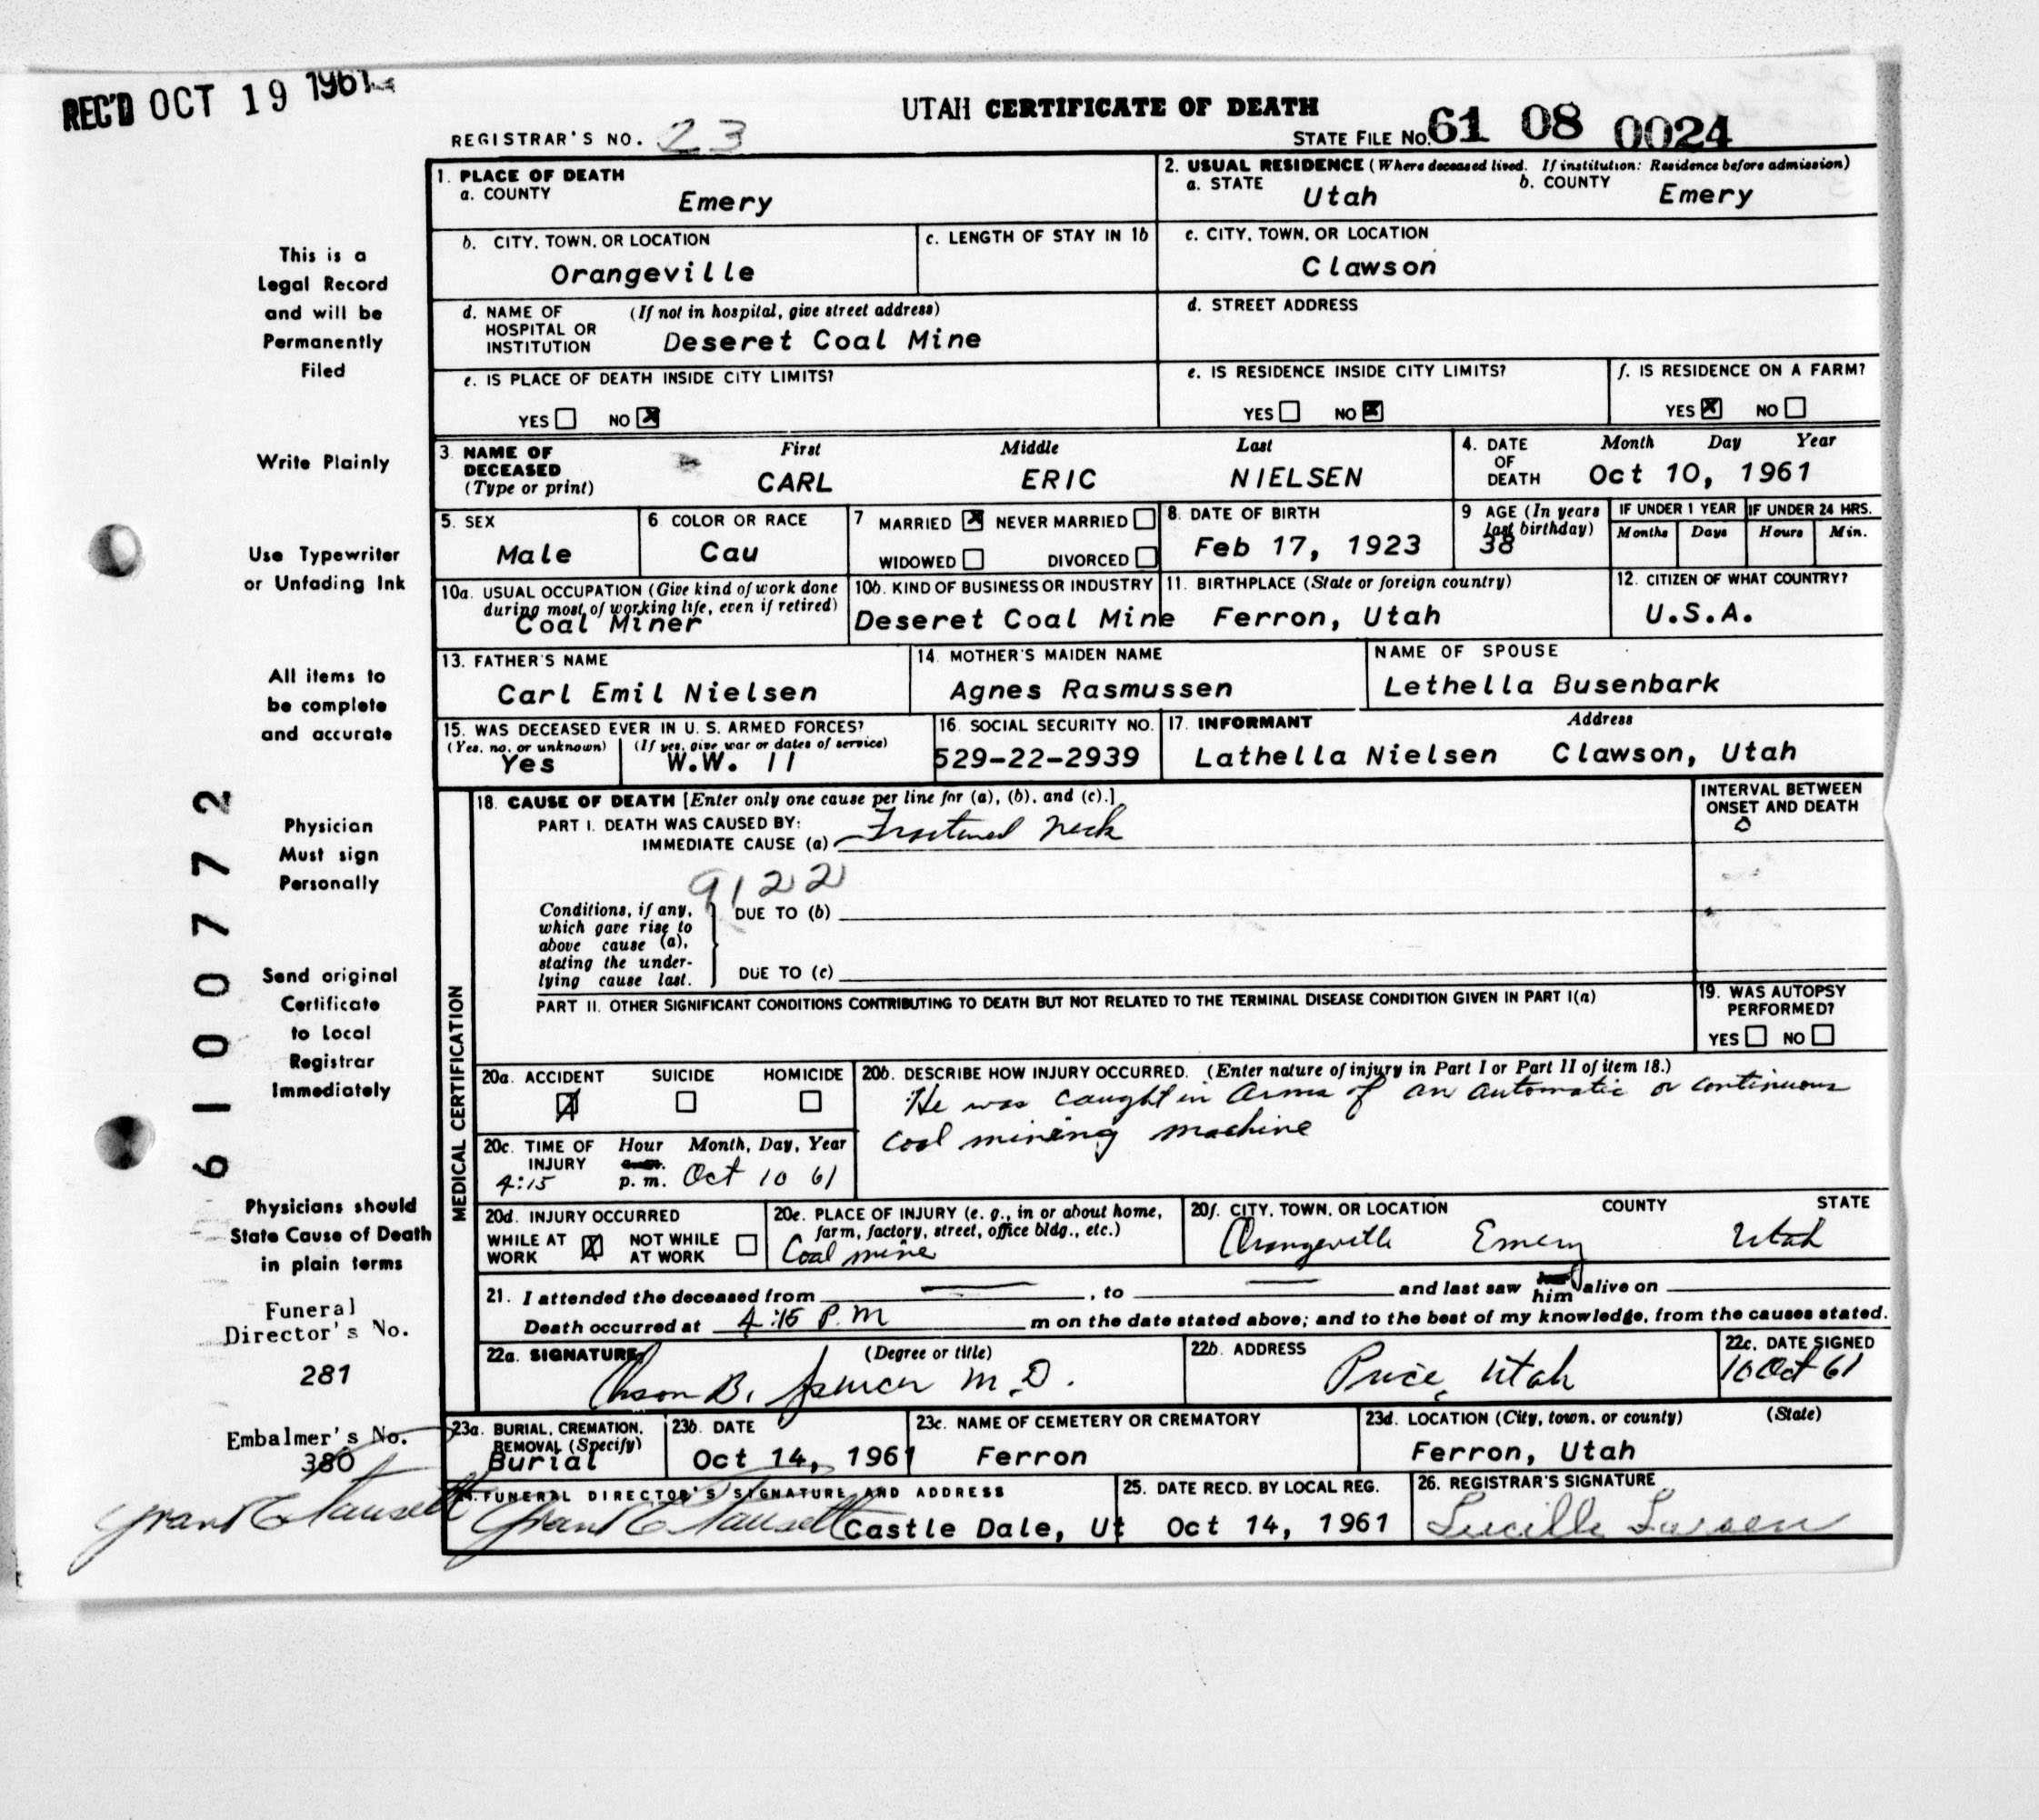 REC'D OCT 19 1961
UTAH CERTIFICATE OF DEATH
REGISTRAR'S NO. 23
STATE FILE NO. 61 08 0024
1. PLACE OF DEATH
a. COUNTY Emery
2. USUAL RESIDENCE (Where deceased lived. If institution: Residence before admission)
a. STATE Utah b. COUNTY Emery
b. CITY, TOWN, OR LOCATION Orangeville
c. LENGTH OF STAY IN 1b
c. CITY, TOWN, OR LOCATION Clawson
d. NAME OF HOSPITAL OR INSTITUTION (If not in hospital, give street address) Deseret Coal Mine
d. STREET ADDRESS
e. IS PLACE OF DEATH INSIDE CITY LIMITS?
YES NO X
e. IS RESIDENCE INSIDE CITY LIMITS?
YES NO X
f. IS RESIDENCE ON A FARM?
YES X NO
3. NAME OF DECEASED (Type or print)
First Middle Last
CARL ERIC NIELSEN
4. DATE OF DEATH Month Day Year
Oct 10, 1961
5. SEX Male
6. COLOR OR RACE Cau
7 MARRIED X NEVER MARRIED
WIDOWED DIVORCED
8. DATE OF BIRTH Feb 17, 1923
9 AGE (In years last birthday) 38
IF UNDER 1 YEAR Months Days
IF UNDER 24 HRS. Hours Min.
10a. USUAL OCCUPATION (Give kind of work done during most of working life, even if retired) Coal Miner
10b. KIND OF BUSINESS OR INDUSTRY Deseret Coal Mine
11. BIRTHPLACE (State or foreign country) Ferron, Utah
12. CITIZEN OF WHAT COUNTRY? U.S.A.
13. FATHER'S NAME Carl Emil Nielsen
14. MOTHER'S MAIDEN NAME Agnes Rasmussen
NAME OF SPOUSE Lethella Busenbark
15. WAS DECEASED EVER IN U. S. ARMED FORCES?
(Yes, no, or unknown) Yes
(If yes, give war or dates of service) W.W. 11
16. SOCIAL SECURITY NO. 529-22-2939
17. INFORMANT Address
Lathella Nielsen Clawson, Utah
MEDICAL CERTIFICATION
18. CAUSE OF DEATH [Enter only one cause per line for (a), (b), and (c).]
PART I. DEATH WAS CAUSED BY:
IMMEDIATE CAUSE (a) Fractured neck
INTERVAL BETWEEN ONSET AND DEATH
0
9122
Conditions, if any, which gave rise to above cause (a), stating the underlying cause last.
DUE TO (b)
DUE TO (c)
PART II. OTHER SIGNIFICANT CONDITIONS CONTRIBUTING TO DEATH BUT NOT RELATED TO THE TERMINAL DISEASE CONDITION GIVEN IN PART I(a)
19. WAS AUTOPSY PERFORMED?
YES NO
20a. ACCIDENT X SUICIDE HOMICIDE
20b. DESCRIBE HOW INJURY OCCURRED. (Enter nature of injury in Part I or Part II of item 18.)
He was caught in arms of an automatic or continuous
coal mining machine
20c. TIME OF INJURY Hour Month, Day, Year
4:15 p. m. Oct 10 61
20d. INJURY OCCURRED
WHILE AT WORK X NOT WHILE AT WORK
20e. PLACE OF INJURY (e. g., in or about home, farm, factory, street, office bldg., etc.)
Coal mine
20f. CITY, TOWN, OR LOCATION COUNTY STATE
Orangeville Emery Utah
21. I attended the deceased from —, to — and last saw him alive on
Death occurred at 4:15 P.M m on the date stated above; and to the best of my knowledge, from the causes stated.
22a. SIGNATURE (Degree or title)
Orson B. Spencer M.D.
22b. ADDRESS Price, Utah
22c. DATE SIGNED 10 Oct 61
23a. BURIAL, CREMATION, REMOVAL (Specify) Burial
23b. DATE Oct 14, 1961
23c. NAME OF CEMETERY OR CREMATORY Ferron
23d. LOCATION (City, town, or county) (State)
Ferron, Utah
24. FUNERAL DIRECTOR'S SIGNATURE AND ADDRESS
Castle Dale, Ut
25. DATE RECD. BY LOCAL REG. Oct 14, 1961
26. REGISTRAR'S SIGNATURE
Lucille Larsen
This is a
Legal Record
and will be
Permanently
Filed
Write Plainly
Use Typewriter
or Unfading Ink
All items to
be complete
and accurate
Physician
Must sign
Personally
Send original
Certificate
to Local
Registrar
Immediately
Physicians should
State Cause of Death
in plain terms
Funeral
Director's No.
281
Embalmer's No.
380
6100772